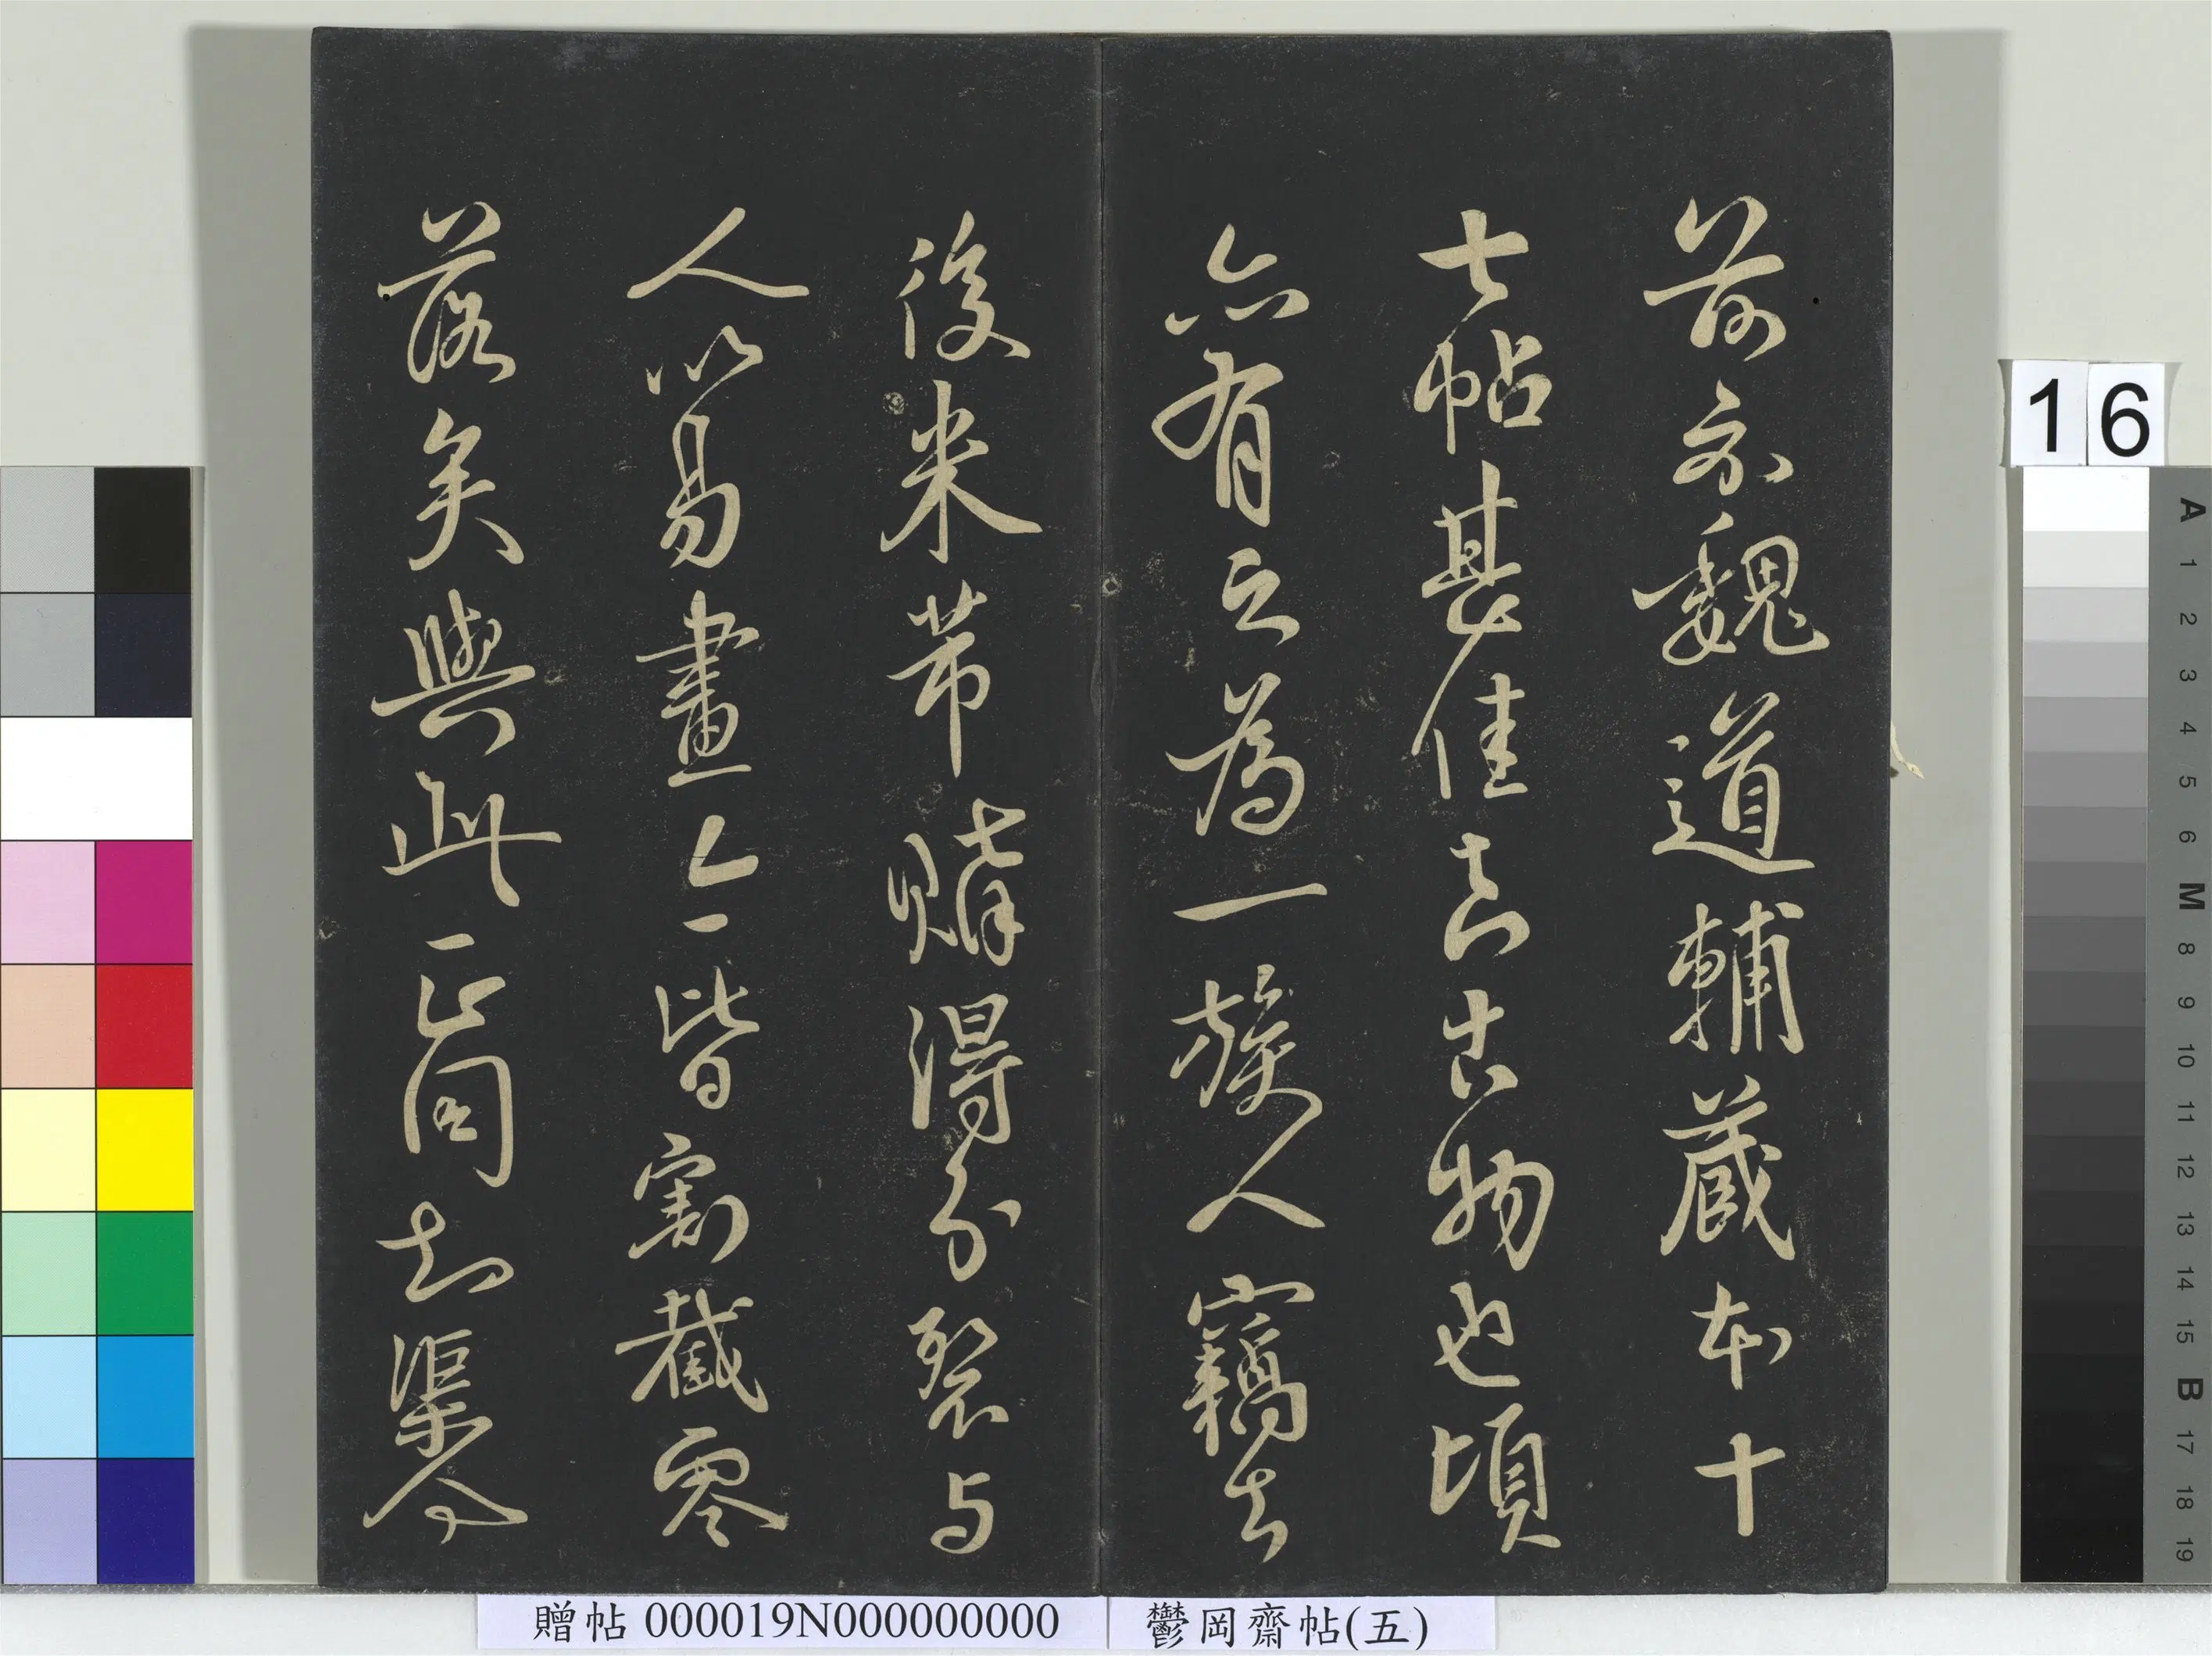 前示魏道輔藏本十
七帖甚佳真古物也頃
亦有之為一族人竊去
後米芾購得分裂与
人以易畫今皆割截零
落矣與此正同知渠今
16
A 1 2 3 4 5 6 M 8 9 10 11 12 13 14 15 B 17 18 19
贈帖 000019N000000000
鬱岡齋帖(五)